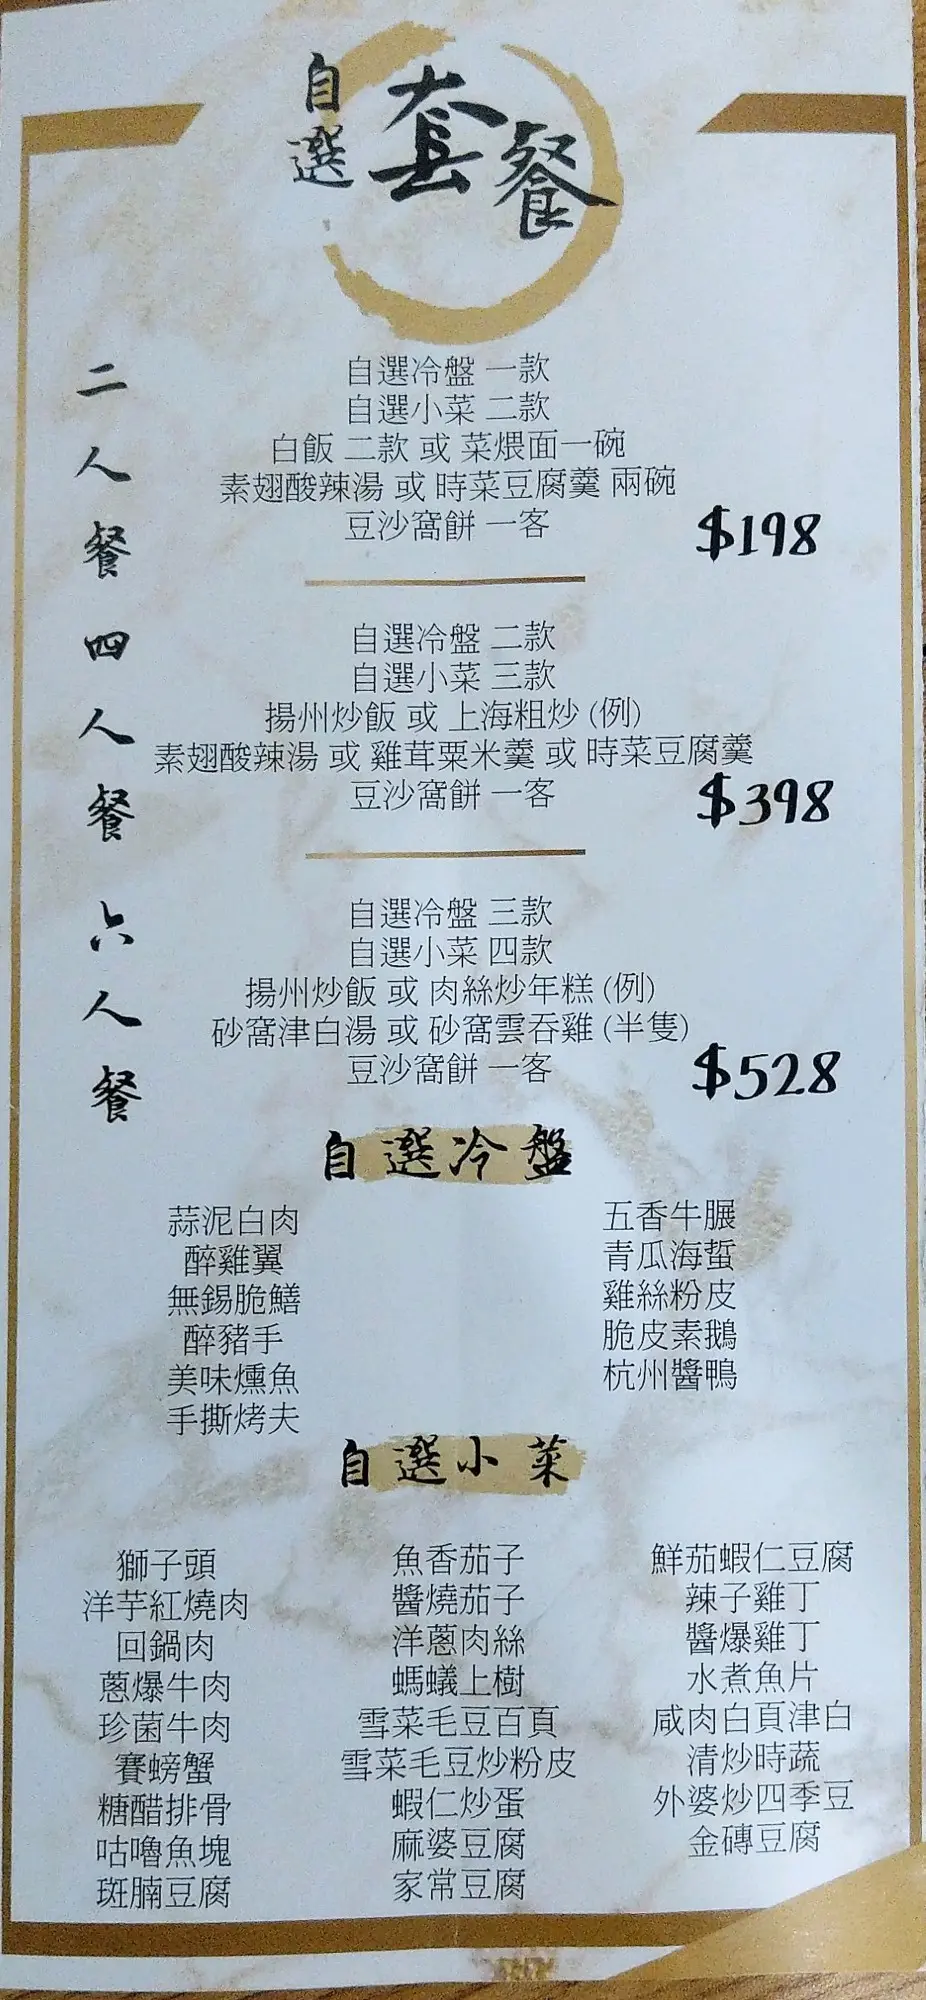 自選套餐
二人餐
自選冷盤 一款
自選小菜 二款
白飯 二款 或 菜煨面一碗
素翅酸辣湯 或 時菜豆腐羹 兩碗
豆沙窩餅 一客
$198
四人餐
自選冷盤 二款
自選小菜 三款
揚州炒飯 或 上海粗炒 (例)
素翅酸辣湯 或 雞茸粟米羹 或 時菜豆腐羹
豆沙窩餅 一客
$398
六人餐
自選冷盤 三款
自選小菜 四款
揚州炒飯 或 肉絲炒年糕 (例)
砂窩津白湯 或 砂窩雲吞雞 (半隻)
豆沙窩餅 一客
$528
自選冷盤
蒜泥白肉
醉雞翼
無錫脆鱔
醉豬手
美味燻魚
手撕烤夫
五香牛𦟌
青瓜海蜇
雞絲粉皮
脆皮素鵝
杭州醬鴨
自選小菜
獅子頭
洋芋紅燒肉
回鍋肉
蔥爆牛肉
珍菌牛肉
賽螃蟹
糖醋排骨
咕嚕魚塊
斑腩豆腐
魚香茄子
醬燒茄子
洋蔥肉絲
螞蟻上樹
雪菜毛豆百頁
雪菜毛豆炒粉皮
蝦仁炒蛋
麻婆豆腐
家常豆腐
鮮茄蝦仁豆腐
辣子雞丁
醬爆雞丁
水煮魚片
咸肉白頁津白
清炒時蔬
外婆炒四季豆
金磚豆腐